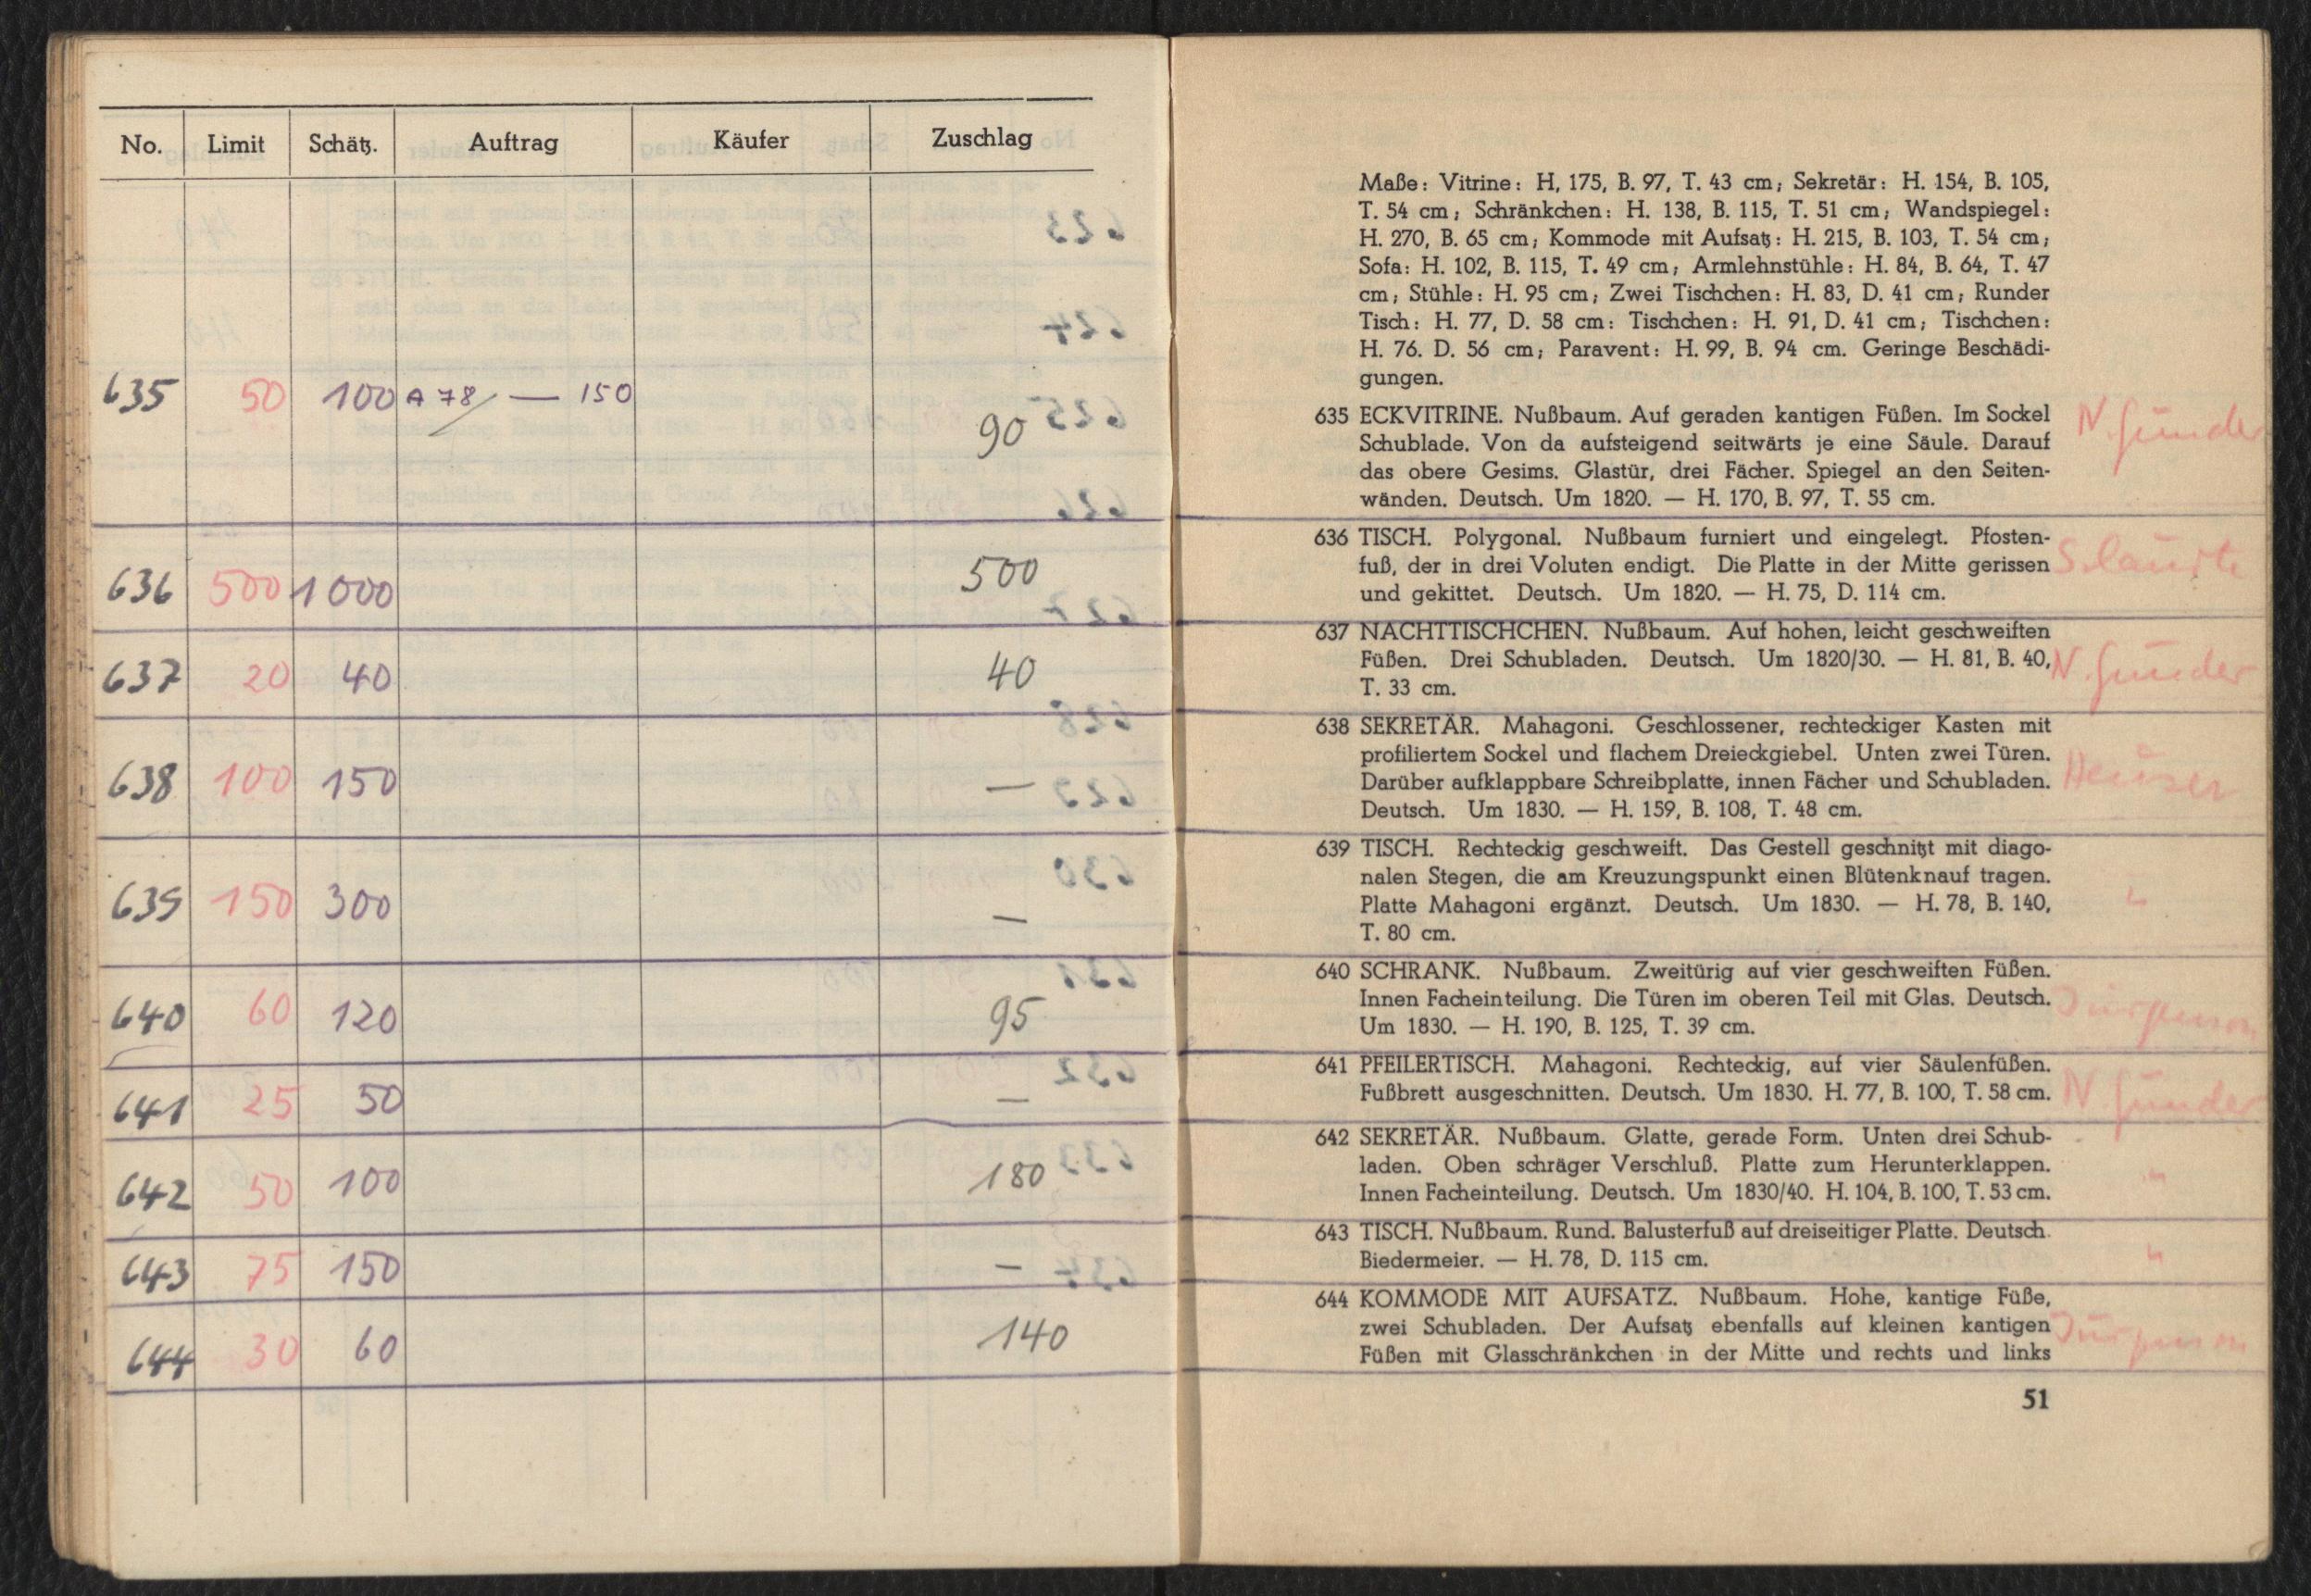 No. Limit Schätz. Auftrag Käufer Zuschlag
635 50 100 A 78/ — 150 90
636 500 1000 500
637 20 40 40
638 100 150 —
639 150 300 —
640 60 120 95
641 25 50 —
642 50 100 180
643 75 150 —
644 30 60 140
Maße: Vitrine: H, 175, B. 97, T. 43 cm; Sekretär: H. 154, B. 105,
T. 54 cm; Schränkchen: H. 138, B. 115, T. 51 cm; Wandspiegel:
H. 270, B. 65 cm; Kommode mit Aufsatz: H. 215, B. 103, T. 54 cm;
Sofa: H. 102, B. 115, T. 49 cm; Armlehnstühle: H. 84, B. 64, T. 47
cm; Stühle: H. 95 cm; Zwei Tischchen: H. 83, D. 41 cm; Runder
Tisch: H. 77, D. 58 cm: Tischchen: H. 91, D. 41 cm; Tischchen:
H. 76. D. 56 cm; Paravent: H. 99, B. 94 cm. Geringe Beschädi-
gungen.
635 ECKVITRINE. Nußbaum. Auf geraden kantigen Füßen. Im Sockel
N. Günder
Schublade. Von da aufsteigend seitwärts je eine Säule. Darauf
das obere Gesims. Glastür, drei Fächer. Spiegel an den Seiten-
wänden. Deutsch. Um 1820. — H. 170, B. 97, T. 55 cm.
636 TISCH. Polygonal. Nußbaum furniert und eingelegt. Pfosten-
fuß, der in drei Voluten endigt. Die Platte in der Mitte gerissen
und gekittet. Deutsch. Um 1820. — H. 75, D. 114 cm.
637 NACHTTISCHCHEN. Nußbaum. Auf hohen, leicht geschweiften
Füßen. Drei Schubladen. Deutsch. Um 1820/30. — H. 81, B. 40,
N. Günder
T. 33 cm.
638 SEKRETÄR. Mahagoni. Geschlossener, rechteckiger Kasten mit
profiliertem Sockel und flachem Dreieckgiebel. Unten zwei Türen.
Darüber aufklappbare Schreibplatte, innen Fächer und Schubladen.
Heuser
Deutsch. Um 1830. — H. 159, B. 108, T. 48 cm.
639 TISCH. Rechteckig geschweift. Das Gestell geschnitzt mit diago-
nalen Stegen, die am Kreuzungspunkt einen Blütenknauf tragen.
Platte Mahagoni ergänzt. Deutsch. Um 1830. — H. 78, B. 140,
"
T. 80 cm.
640 SCHRANK. Nußbaum. Zweitürig auf vier geschweiften Füßen.
Innen Facheinteilung. Die Türen im oberen Teil mit Glas. Deutsch.
Um 1830. — H. 190, B. 125, T. 39 cm.
641 PFEILERTISCH. Mahagoni. Rechteckig, auf vier Säulenfüßen.
Fußbrett ausgeschnitten. Deutsch. Um 1830. H. 77, B. 100, T. 58 cm.
N. Günder
642 SEKRETÄR. Nußbaum. Glatte, gerade Form. Unten drei Schub-
laden. Oben schräger Verschluß. Platte zum Herunterklappen.
"
Innen Facheinteilung. Deutsch. Um 1830/40. H. 104, B. 100, T. 53 cm.
643 TISCH. Nußbaum. Rund. Balusterfuß auf dreiseitiger Platte. Deutsch.
Biedermeier. — H. 78, D. 115 cm.
"
644 KOMMODE MIT AUFSATZ. Nußbaum. Hohe, kantige Füße,
zwei Schubladen. Der Aufsatz ebenfalls auf kleinen kantigen
Füßen mit Glasschränkchen in der Mitte und rechts und links
51